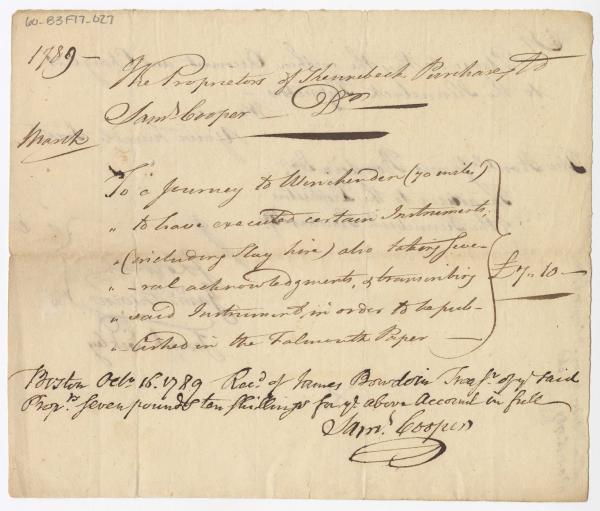 60-B3F17-027
1789 —
The Proprietors of Kennebeck Purchase, To
Samˡ Cooper — Dr
March
To a Journey to Winchendon (70 miles)
" to have executed certain Instruments,
" (including Slay hire) also taking seve-
" -ral acknowledgments, & transcribing
" said Instrument, in order to be pub-
" -lished in the Falmouth Paper —
£7..10 —
Boston Octr 16. 1789 Recd of James Bowdoin Treasr of ye said
Proprs seven pounds ten shillings for ye above Account in full
Samˡ Cooper